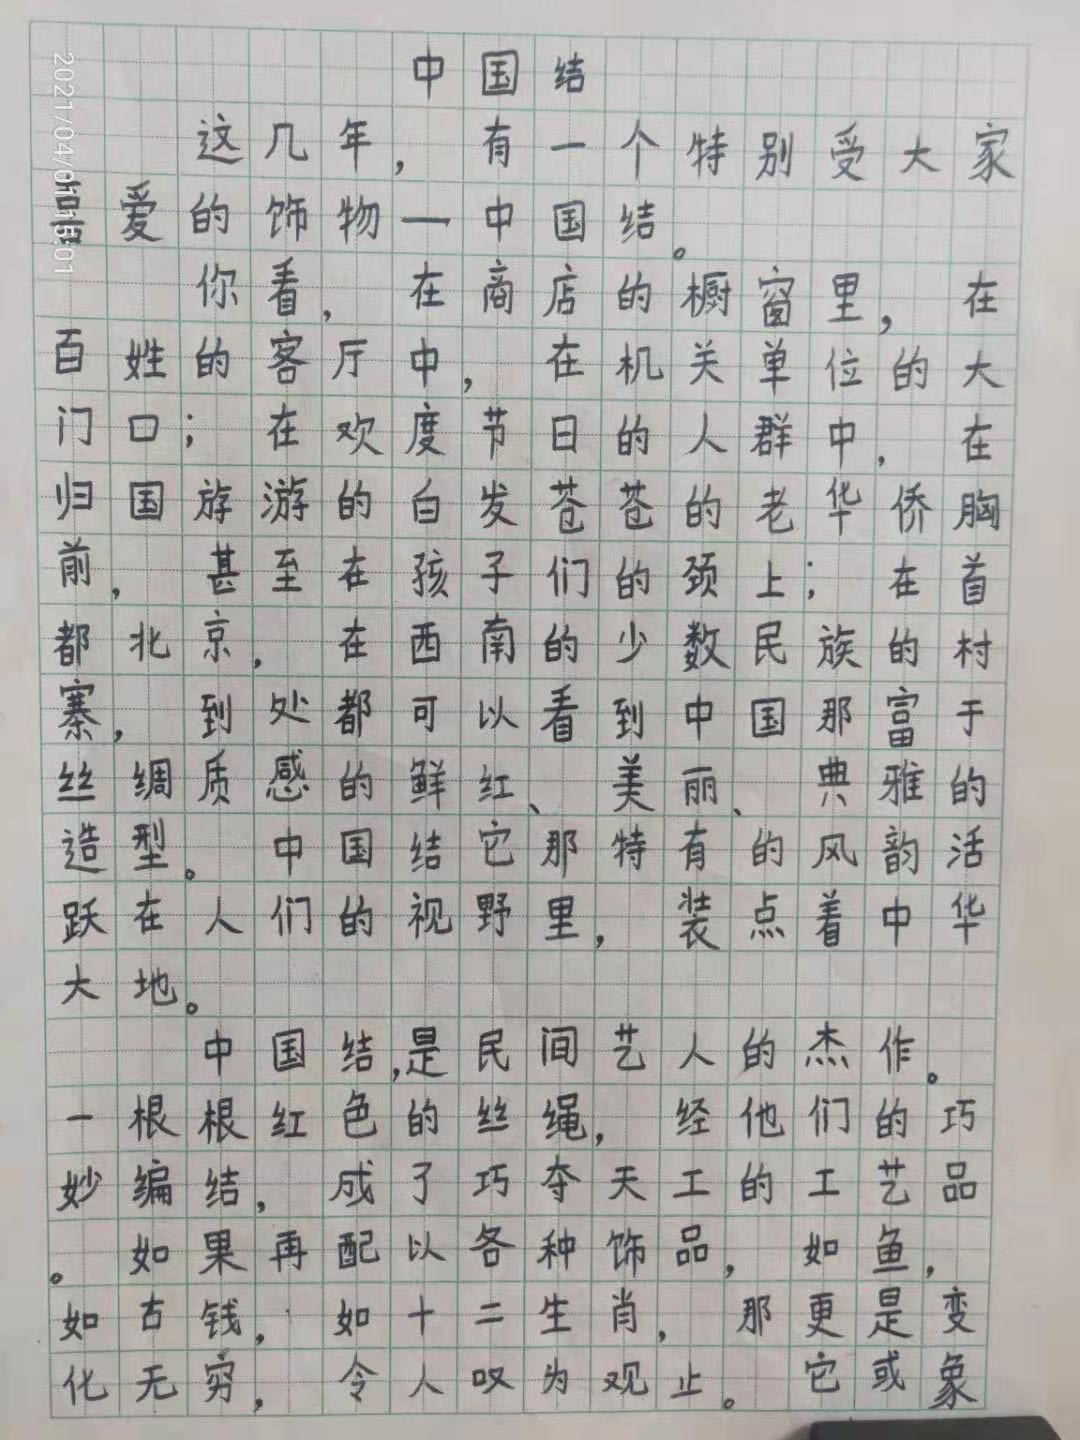 中国结
这几年，有一个特别受大家
喜爱的饰物一中国结。
你看，在商店的橱窗里，在
百姓的客厅中，在机关单位的大
门口；在欢度节日的人群中，在
归国游游的白发苍苍的老华侨胸
前，甚至在孩子们的颈上；在首
都北京，在西南的少数民族的村
寨，到处都可以看到中国那富于
丝绸质感的鲜红、美丽、典雅的
造型。中国结它那特有的风韵活
跃在人们的视野里，装点着中华
大地。
中国结,是民间艺人的杰作。
一根根红色的丝绳，经他们的巧
妙编结，成了巧夺天工的工艺品
。如果再配以各种饰品，如鱼，
如古钱，如十二生肖，那更是变
化无穷，令人叹为观止。它或象
2021/04/01 15:01